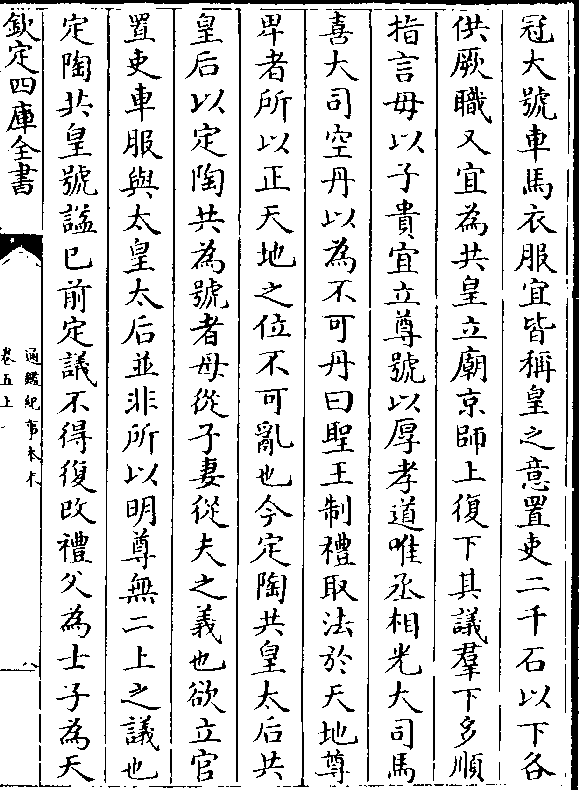 冠大號車馬衣服宜皆稱皇之意置吏二千石以下各
供厥職又宜為共皇立廟京師上復下其議羣下多順
指言母以子貴宜立尊號以厚孝道唯丞相光大司馬
喜大司空丹以為不可丹曰聖王制禮取法於天地尊
卑者所以正天地之位不可亂也今定陶共皇太后共
皇后以定陶共為號者母從子妻從夫之義也欲立官
置吏車服與太皇太后並非所以明尊無二上之議也
定陶共皇號謚已前定議不得復改禮父為士子為天
欽定四庫全書
通鑑紀事本末
卷五上
八